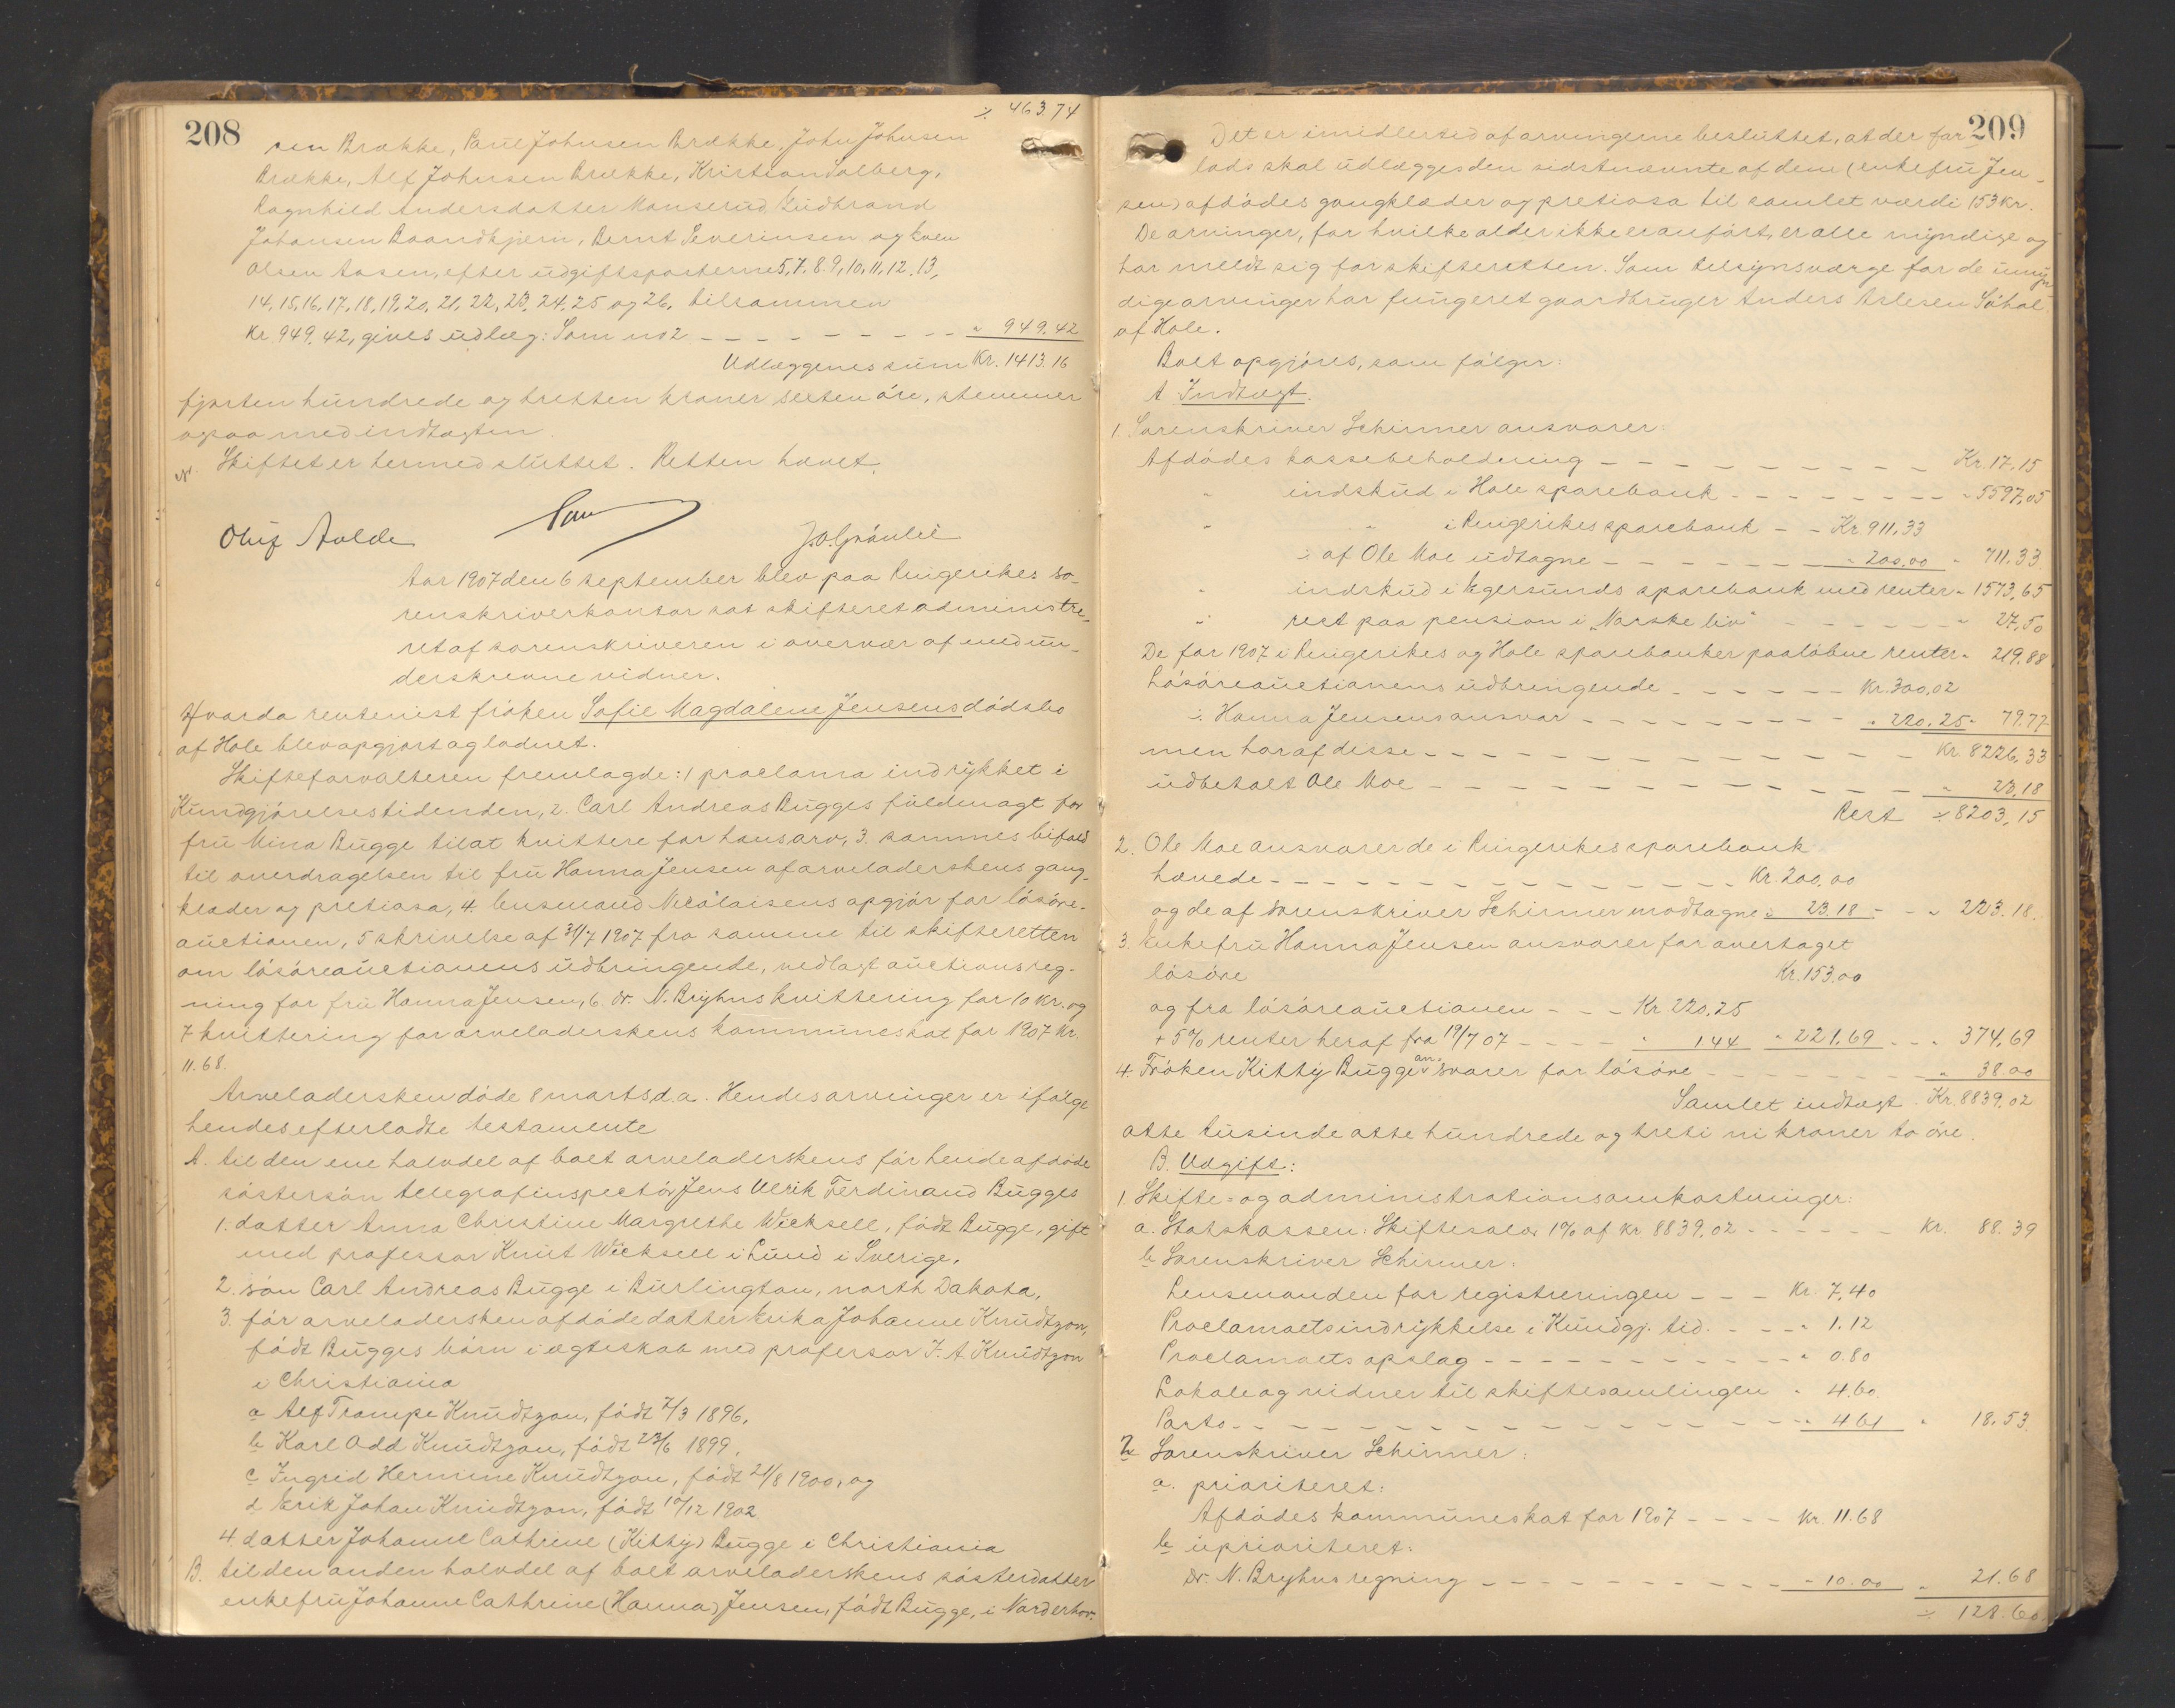 208
÷ 463 74
sen Brække, Paul Johnsen Brække, John Johnsen
Brække, Alf Johnsen Brække, Kristian Solberg,
Ragnhild Andersdatter Manserud, Gudbrand
Johansen Baandkjern, Bernt Severinsen og
Olsen Aasen, efter udgiftsposterne 5, 7, 8, 9, 10, 11, 12, 13,
14, 15, 16, 17, 18, 19, 20, 21, 22, 23, 24, 25 og 26, tilsammen
Kr. 949.42, gives udlæg: Som no 2 - - - - - - - - " 949.42
Udlæggenes sum Kr. 1413.16
fjorten hundrede og tretten kroner sexten øre, stemmer
ogsaa med indtægten.
Skiftet er hermed sluttet. Retten hævet.
Oluf Aalde
J.O. Grønlie
Aar 1907 den 6 september blev paa Ringerikes so-
renskriverkontor sat skifteret administre-
ret af sorenskriveren i overvær af medun-
derskrevne vidner.
Hvorda rentenist frøken Sofie Magdalene Jensens dødsbo
af Hole blev opgjort og lodnet.
Skifteforvalteren fremlagde: 1 proclama indrykket i
Kundgjørelsestidenden, 2. Carl Andreas Bugges fuldmagt for
fru Mina Bugge til at kvittere for hans arv, 3. sammes bifald
til overdragelsen til fru Hanna Jensen af arveladerskens gang-
klæder og pretiosa, 4. lensmand Nicolaisens opgjør for løsøre-
auctionen, 5 skrivelse af 31/7 1907 fra samme til skifteretten
om løsøreauctionens udbringende, vedlagt auctionsreg-
ning for fru Hanna Jensen, 6. dr. N. Bryhns kvittering for 10 kr. og
7 kvittering for arveladerskens kommuneskat for 1907 kr.
11.68.
Arveladersken døde 8 marts d.a. Hendes arvinger er ifølge
hendes efterladte testamente
A. til den ene halvdel af boet arveladerskens før hende afdøde
søstersøn telegrafinspectør Jens Ulrik Ferdinand Bugges
1. datter Anna Christine Margrethe Wicksell, født Bugge, gift
med professor Knut Wicksell i Lund i Sverige.
2. søn Carl Andreas Bugge i Burlington, north Dakota,
3. før arveladersken afdøde datter Erika Johanne Knudtzon,
født Bugges børn i ægteskab med professor J. A. Knudtzon
i Christiania
a Alf Trampe Knudtzon, født 7/3 1896.
b Karl Odd Knudtzon, født 23/6 1899.
c Ingrid Hermine Knudtzon, født 21/8 1900, og
d Erik Johan Knudtzon, født 10/12 1902
4. datter Johanne Cathrine (Kitty) Bugge i Christiania
B. til den anden halvdel af boet arveladerskens søsterdatter
enkefru Johanne Cathrine (Hanna) Jensen, født Bugge, i Norderhov.
209
Det er imidlertid af arvingerne besluttet, at der for-
lods skal udlægges den sidstnævnte af dem (enkefru Jen-
sen) afdødes gangklæder og pretiosa til samlet værdi 153 kr.
De arvinger, for hvilke alder ikke er anført, er alle myndige og
har meldt sig for skifteretten. Som tilsynsværge for de umyn-
dige arvinger har fungeret gaardbruger Anders Arlesen Søhol
af Hole.
Boet opgjøres, som følger:
A Indtægt.
1. Sorenskriver Schirmer ansvarer:
Afdødes kassebeholdning - - - - - - - - - Kr. 17,15
" indskud i Hole sparebank - - - - - - - - " 5597,05
" " i Ringerikes sparebank - - Kr. 911.33
÷ af Ole Moe udtagne - - - - - - " 200,00 " 711.33
" indskud i Egersunds sparebank med renter " 1573,65
" rest paa pension i "Norske liv" - - - - - - " 27,50
De for 1907 i Ringerikes og Hole sparebanker paaløbne renter " 219.88
Løsøreauctionens udbringende - - - - - Kr. 300,02
÷ Hanna Jensens ansvar - - - - - - - " 220.25 " 79.77
Kr. 8226,33
men har af disse - - - - - - - - -
udbetalt Ole Moe - - - - - - - - - - - " 23,18
Rest ÷ 8203,15
2. Ole Moe ansvarer de i Ringerikes sparebank
hævede - - - - - - - - - - - - Kr. 200,00
og de af sorenskriver Schirmer modtagne " 23.18 - - " 223.18
3. Enkefru Hanna Jensen ansvarer for overtaget
løsøre Kr. 153.00
og fra løsøreauctionen - - - Kr. 220.25
+ 5% renter heraf fra 19/7 07 - - - - " 144 " 221.69 - - " 374,69
4. Frøken Kitty Bugge ansvarer for løsøre - - - - - - - " 38.00
Samlet indtægt Kr. 8839.02
otte tusinde otte hundrede og treti ni kroner to øre.
B. Udgift:
1. Skifte- og administrationsomkostninger:
a. Statskassen: Skiftesalær 1% af kr. 8839.02 - - - - - - Kr. 88.39
b Sorenskriver Schirmer:
Lensmanden for registreringen - - - Kr. 7,40
Proclamaets indrykkelse i Kundgj. tid. - - - " 1.12
Proclamaets opslag - - - - - - - - - - " 0.80
Lokale og vidner til skiftesamlingen " 4.60
Porto - - - - - - - - - - - - - - " 4 61 " 18.53
2 Sorenskriver Schirmer:
a. prioriteret:
Afdødes kommuneskat for 1907 - - - - Kr. 11.68
b uprioriteret:
Dr. N. Bryhns regning - - - - - - - - - " 10.00 " 21.68
÷ 128.60